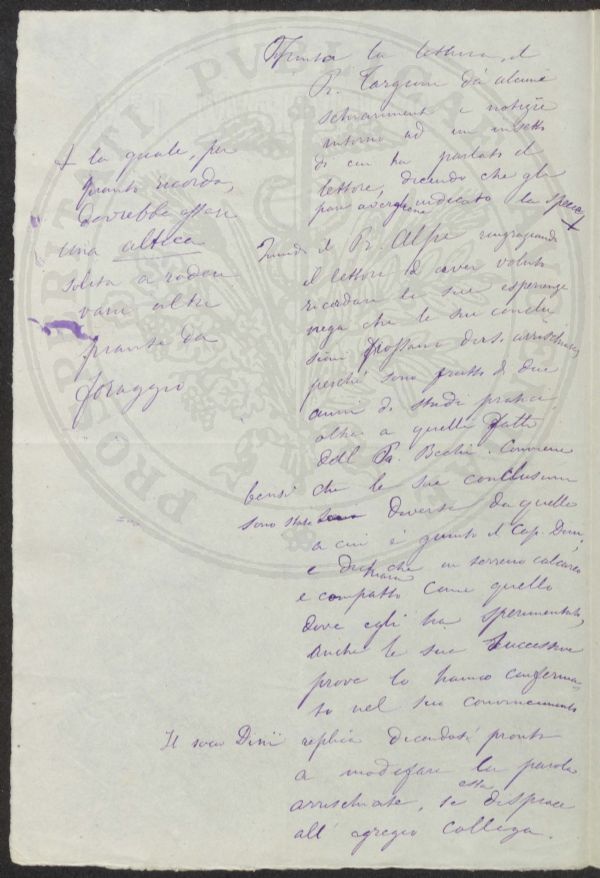 Finita la lettura, il
P. Targioni dà alcuni
schiarimenti e notizie
intorno ad un insetto
di cui ha parlato il
lettore, dicendo che gli
pare avergliene indicato la specie +
+ la quale, per
quanto ricorda,
dovrebbe essere
una altica
solita a rodere
varie altre
piante da
foraggio
Quindi il P. Alpe ringraziando
il lettore d'aver voluto
ricordare le sue esperienze
nega che le sue conclu
sioni possano dirsi arrischiate,
perché sono frutto di due
anni di studi pratici
oltre a quelli fatti
dal P. Bechi. Conviene
bensì che le sue conclusioni
sono state diverse da quelle
a cui è giunto il Cap. Dini,
e dichiara che in terreno calcareo
e compatto come quello
dove egli ha sperimentato,
anche le sue successive
prove lo hanno conferma
to nel suo convincimento
Il socio Dini replica dicendosi pronto
a modificare la parola
arrischiate, se essa dispiace
all' egregio collega.
PROSPERITATI PUBLICAE